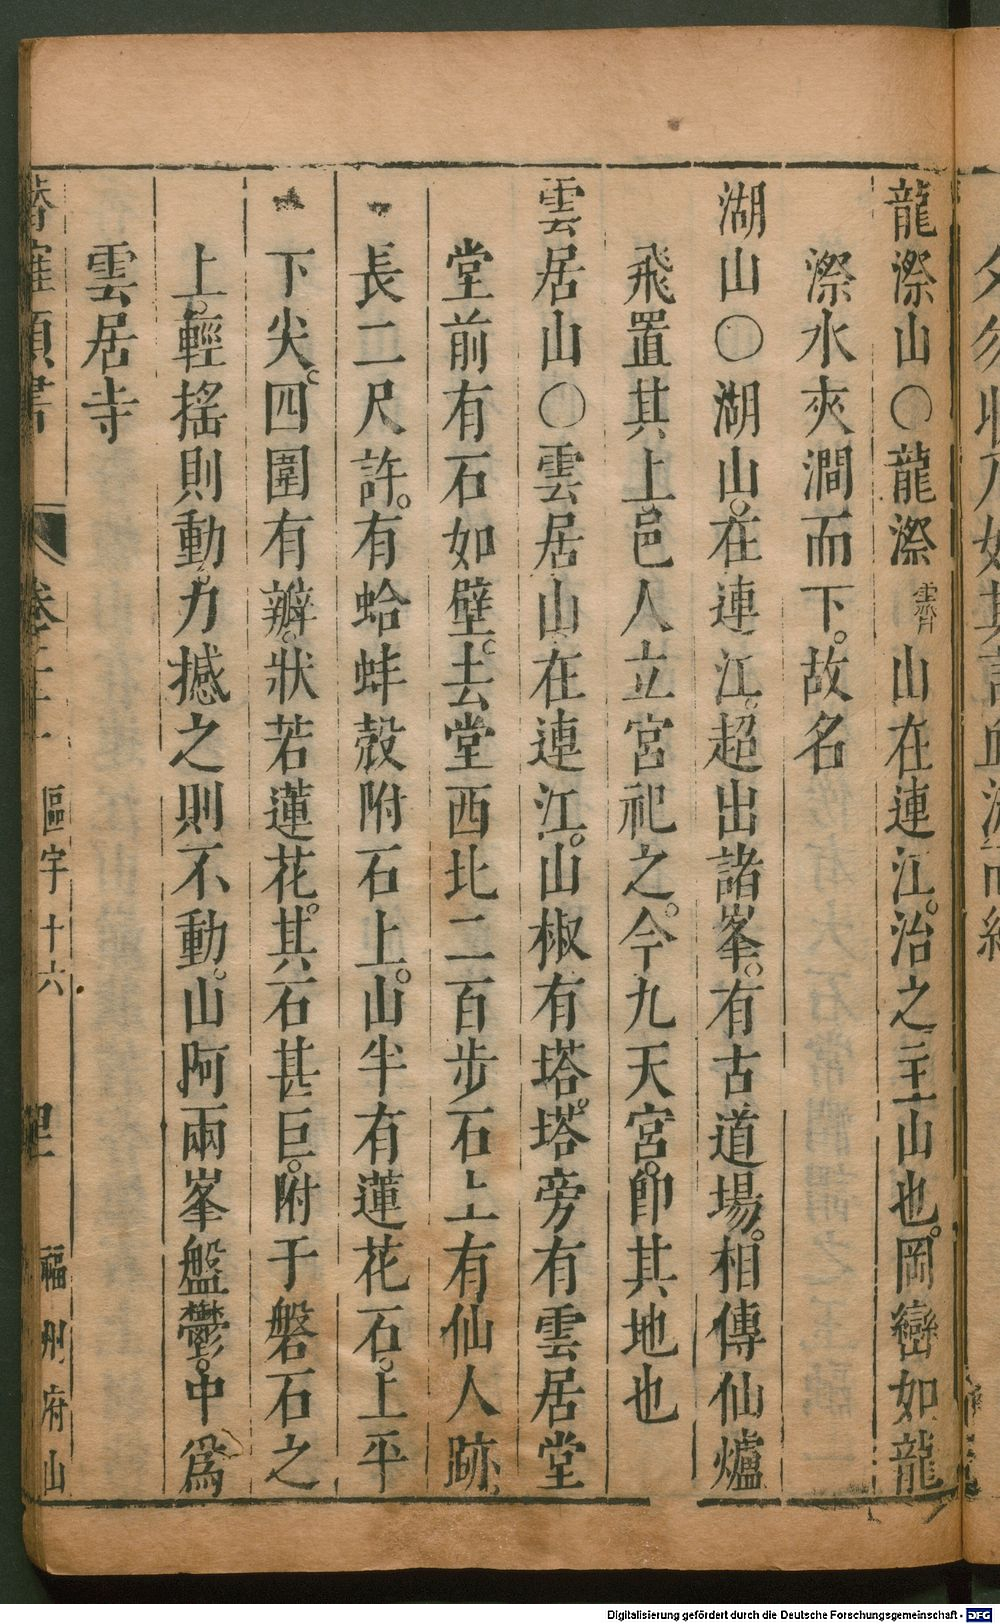 龍漈山○龍漈霽山在連江。治之主山也。岡巒如龍
漈水夾澗而下。故名
湖山○湖山。在連江。超出諸峯。有古道場。相傳仙爐
飛置其上邑人立宮祀之。今九天宮。卽其地也
雲居山○雲居山在連江。山椒有塔。塔旁有雲居堂
堂前有石如壁。去堂西北二百步石上有仙人跡
長二尺許。有蛤蚌殼附石上。山半有蓮花石。上平
下尖。四圍有瓣。狀若蓮花。其石甚巨。附于磐石之
上。輕搖則動。力撼之則不動。山阿兩峯盤鬱。中爲
雲居寺
類書
卷二十一
區宇十六
福州府山
Digitalisierung gefördert durch die Deutsche Forschungsgemeinschaft - DFG